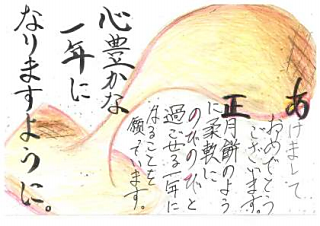 あけまして
おめでとう
ございます。
正月餅のよう
に柔軟に
のびのびと
過ごせる一年に
なることを
願っています。
心豊かな
一年に
なりますように。